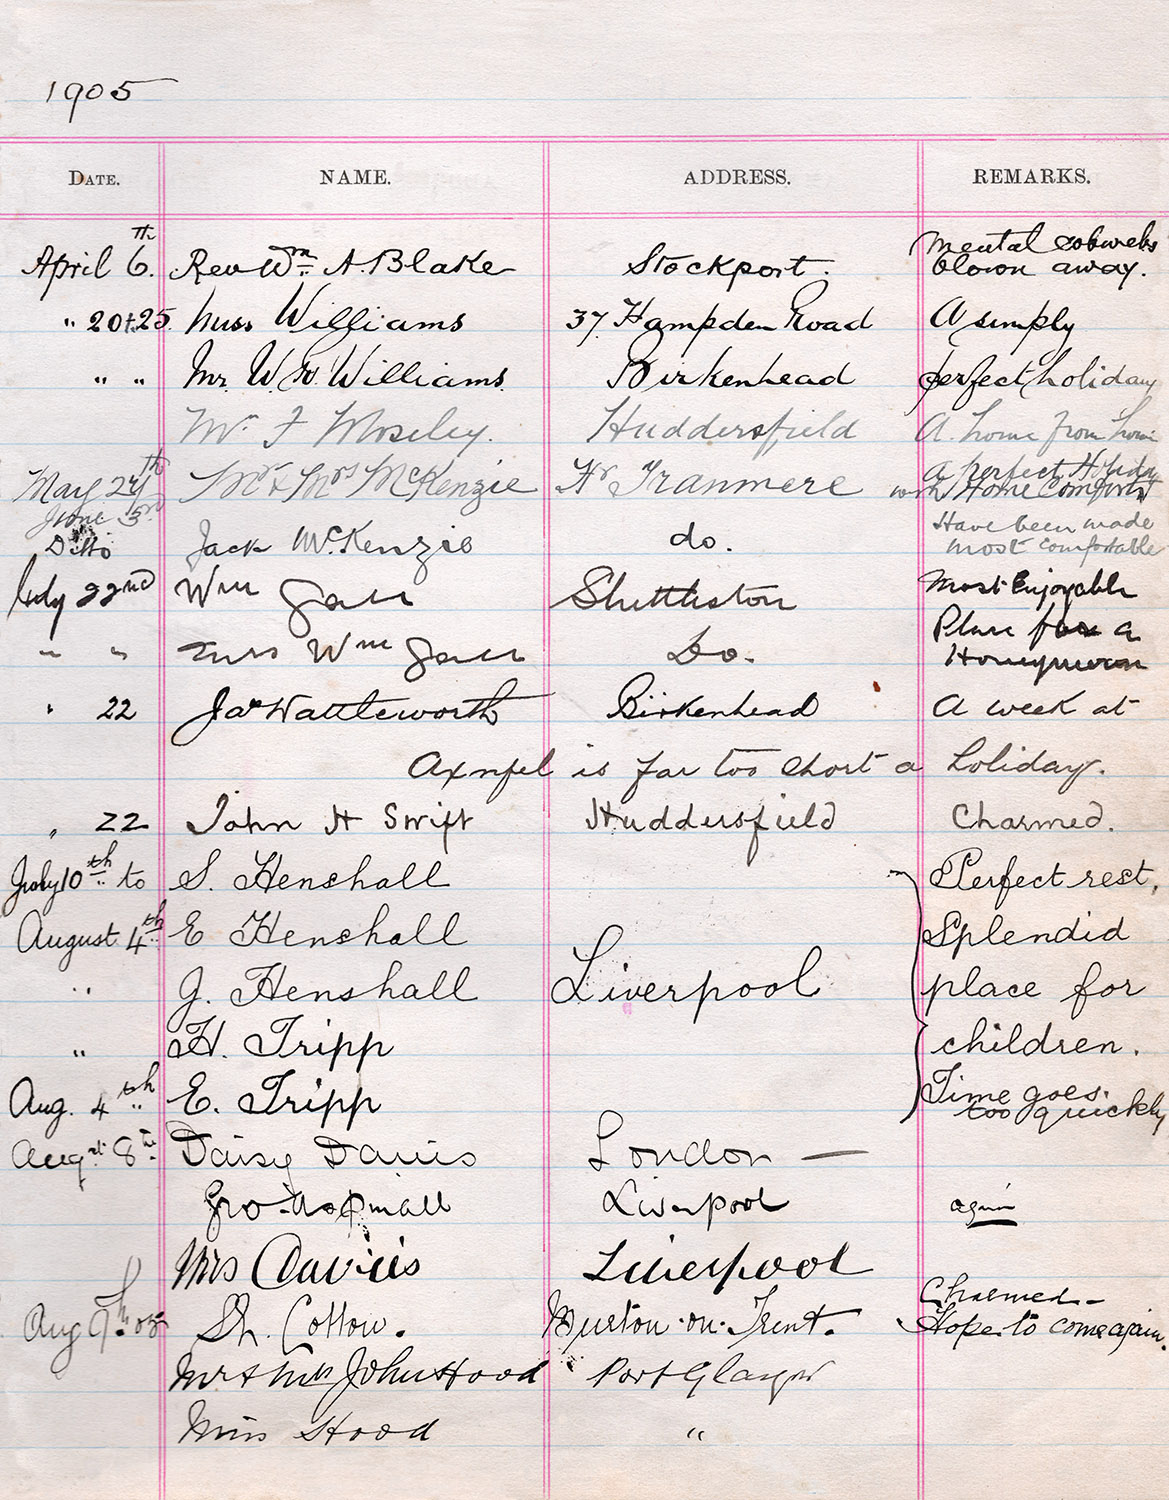 1905
DATE. NAME. ADDRESS. REMARKS.
April 6th. Rev Wm. A. Blake Stockport. Mental cobwebs blown away.
" 20t.25. Miss Williams 37 Hampden Road A simply
" " Mr W. Williams. Birkenhead perfect holiday
Mr F Moseley. Huddersfield A home from home
May 27th Mr & Mrs McKenzie Hr Tranmere a perfect Holiday with Home Comforts
June 5th
Ditto Jack McKenzie do. Have been made most comfortable
July 22nd Wm Gall Shettleston Most Enjoyable
" " Mrs Wm Gall Do. Place for a Honeymoon
" 22 Jas Wattleworth Birkenhead A week at
is far too short a holiday.
" 22 John H Swift Huddersfield Charmed.
July 10th to S. Henshall Perfect rest,
August 4th E Henshall Splendid
" G. Henshall Liverpool place for
" H. Tripp children.
Aug. 4th E. Tripp Time goes too quickly
Augst 8th Daisy Davis London —
Liverpool again
Mrs Davies Liverpool
Aug 9th 05 Cotton. Burton-on-Trent. Charmed - Hope to come again.
Mr & Mrs John Hood Port Glasgow
Miss Hood "